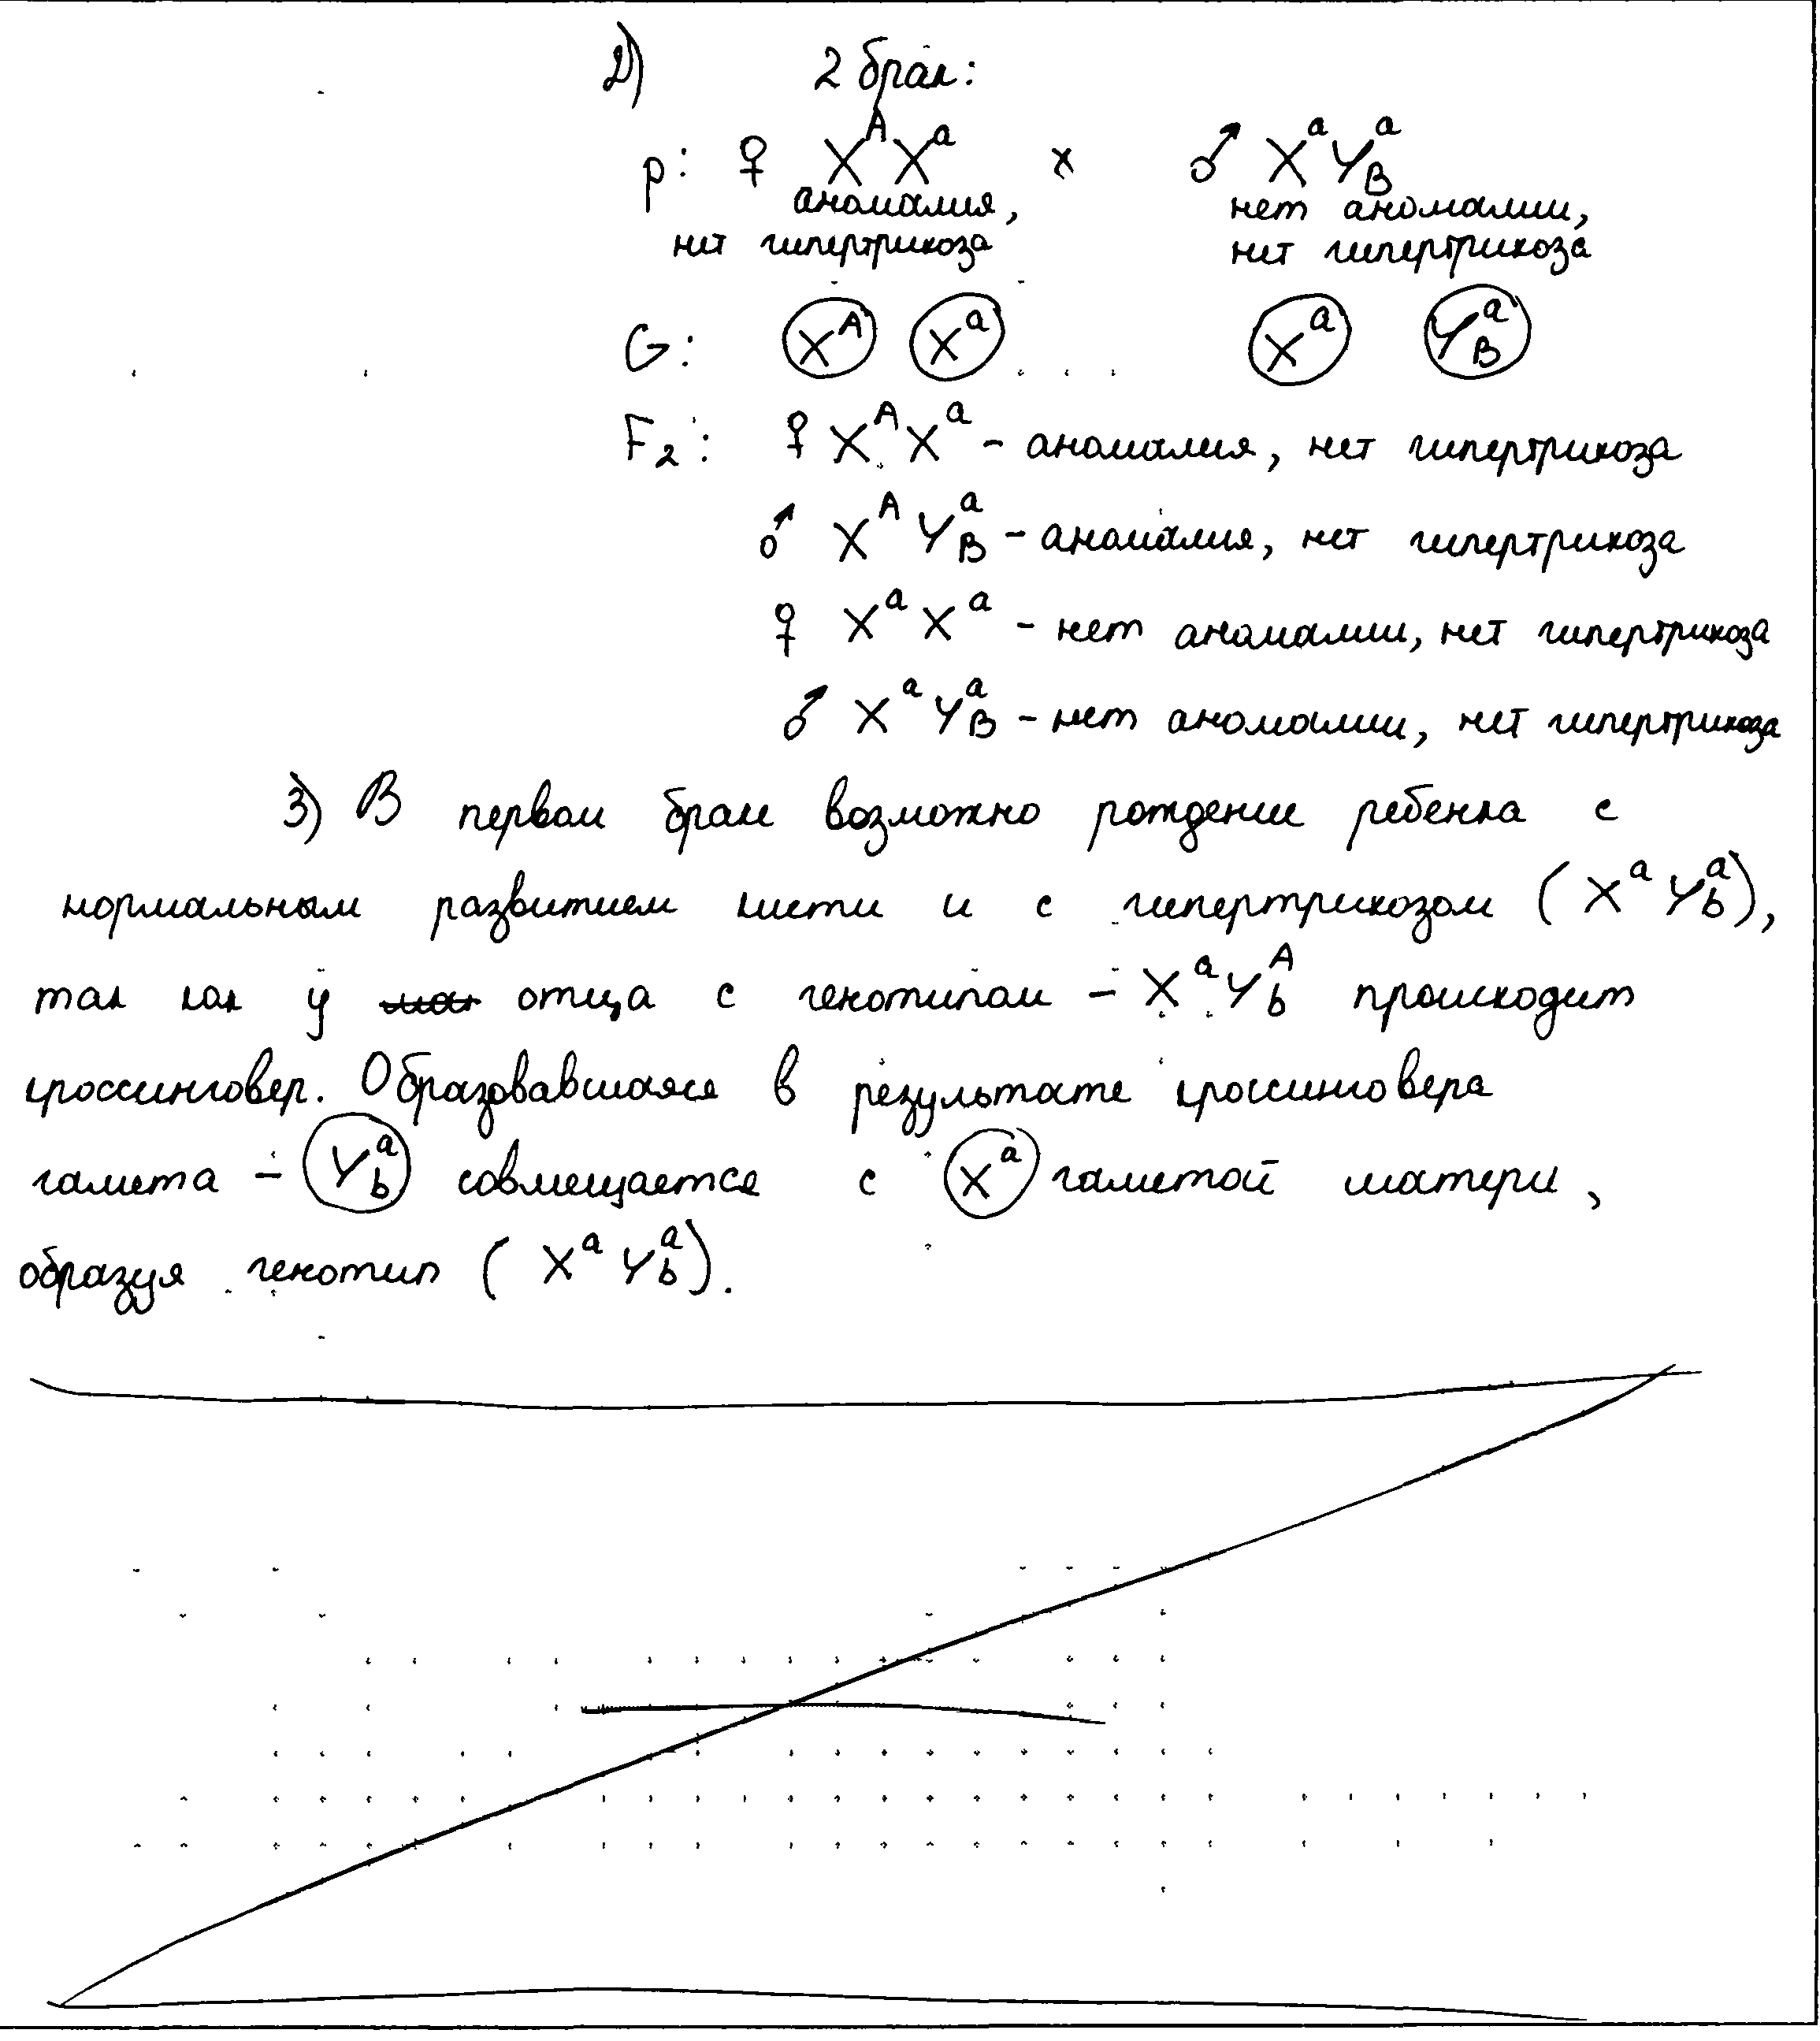 2) 2 брак:
р: ♀ X^A X^a × ♂ X^a Y_B^a
аномалия, нет аномалии,
нет гипертрихоза нет гипертрихоза
G: X^A X^a X^a Y_B^a
F₂: ♀ X^A X^a - аномалия, нет гипертрихоза
♂ X^A Y_B^a - аномалия, нет гипертрихоза
♀ X^a X^a - нет аномалии, нет гипертрихоза
♂ X^a Y_B^a - нет аномалии, нет гипертрихоза
3) В первом браке возможно рождение ребенка с
нормальным развитием кисти и с гипертрихозом (X^a Y_b^a),
так как у отца с генотипом - X^a Y_b^A происходит
кроссинговер. Образовавшаяся в результате кроссинговера
гамета - Y_b^a совмещается с X^a гаметой матери,
образуя генотип (X^a Y_b^a).